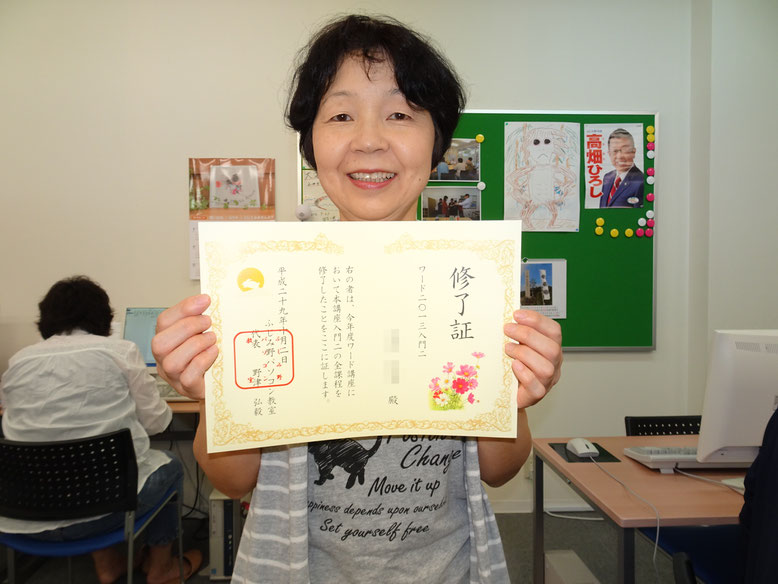 修了証
ワード二〇一三入門二
殿
右の者は、今年度ワード講座に
おいて本講座入門二の全課程を
修了したことをここに証します。
平成二十九年
ふじみ野パソコン教室
代表 野津 弘毅
高畑ひろし
Change
Move it up
depends upon
Set yourself free